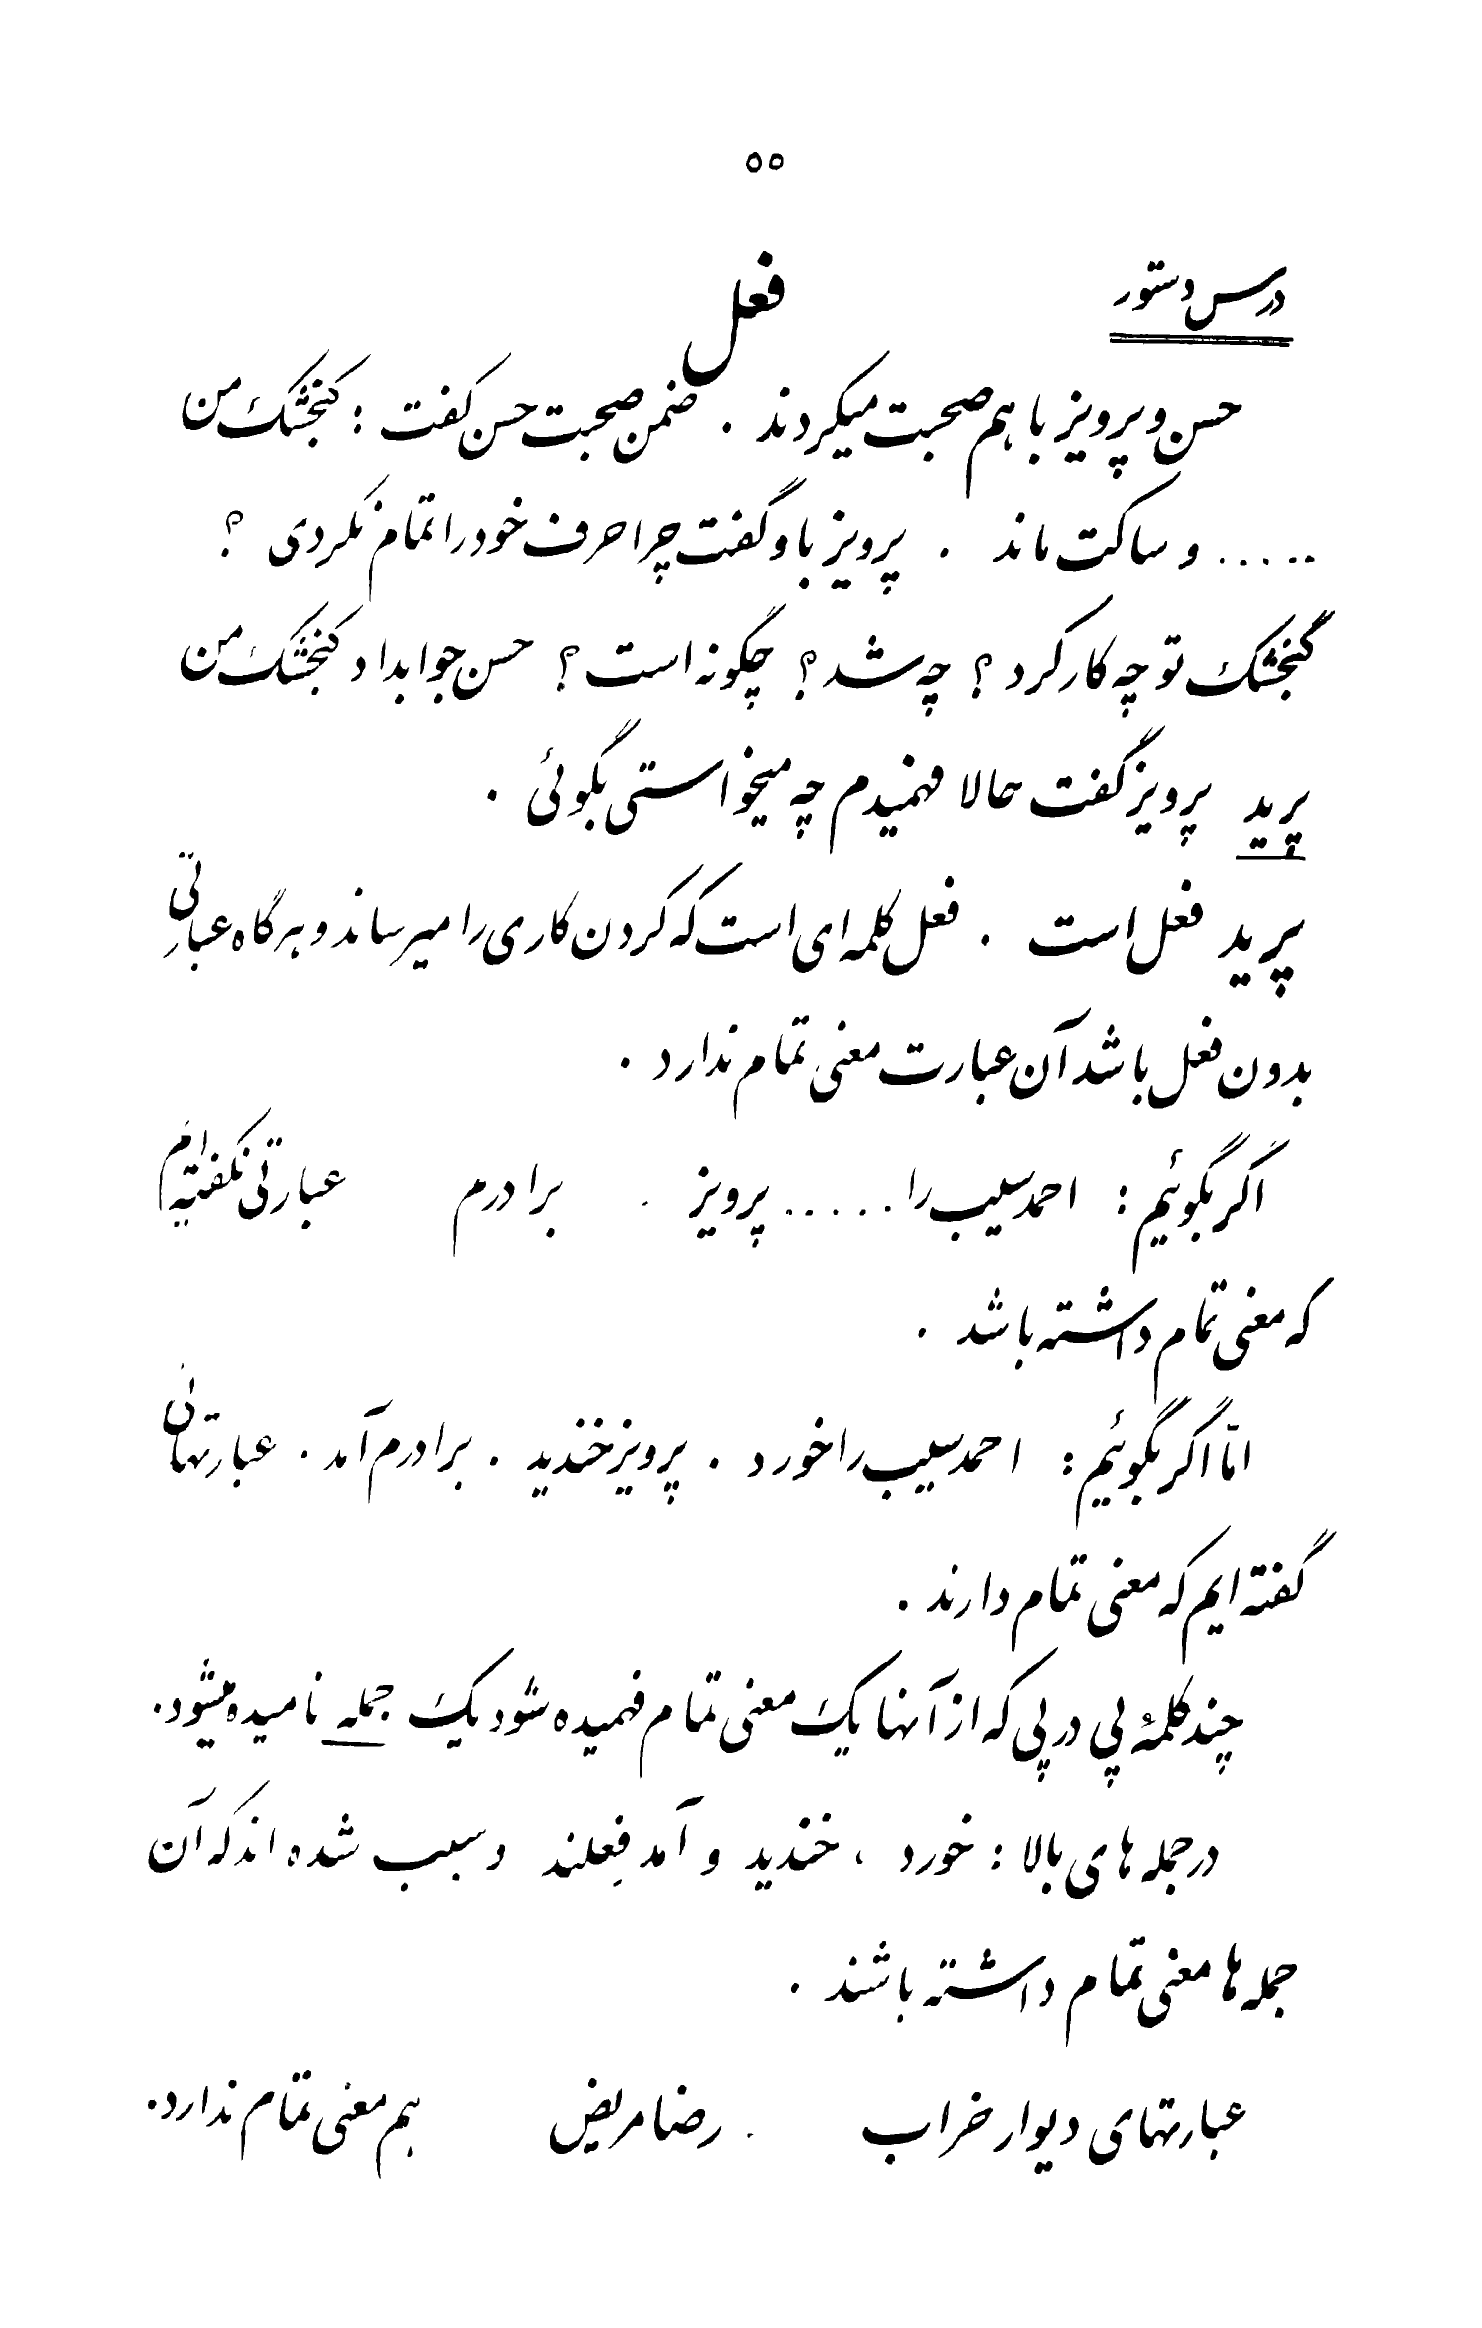 ۵۵
درس دستور
فعل
حسن و پرویز با هم صحبت میکردند . ضمن صحبت حسن گفت : گنجشک من
..... و ساکت ماند . پرویز باو گفت چرا حرف خود را تمام نکردی ؟
گنجشک تو چه کار کرد ؟ چه شد ؟ چگونه است ؟ حسن جوابداد گنجشک من
پرید پرویز گفت حالا فهمیدم چه میخواستی بگوئی .
پرید فعل است . فعل کلمه ای است که کردن کاری را میرساند و هر گاه عبارتی
بدون فعل باشد آن عبارت معنی تمام ندارد .
اگر بگوئیم : احمد سیب را ..... پرویز . برادرم عبارتی نگفته ایم
که معنی تمام داشته باشد .
امّا اگر بگوئیم : احمد سیب را خورد . پرویز خندید . برادرم آمد . عبارتهائی
گفته ایم که معنی تمام دارند .
چند کلمهٔ پی در پی که از آنها یک معنی تمام فهمیده شود یک جمله نامیده میشود.
در جمله های بالا : خورد ، خندید و آمد فِعلند و سبب شده اند که آن
جمله ها معنی تمام داشته باشند .
عبارتهای دیوار خراب . رضا مریض هم معنی تمام ندارد.